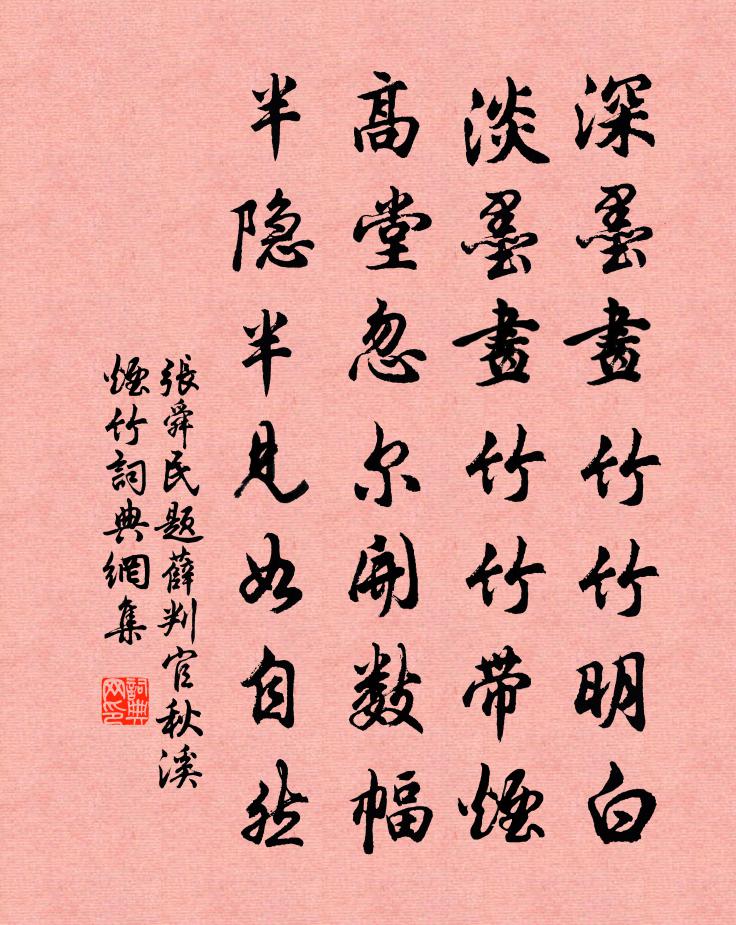 深墨畫竹竹明白
淡墨畫竹竹帶煙
高堂忽尔開數幅
半隐半見如自然
張舜民題薛判官秋溪
煙竹詞典網集
詞典网印